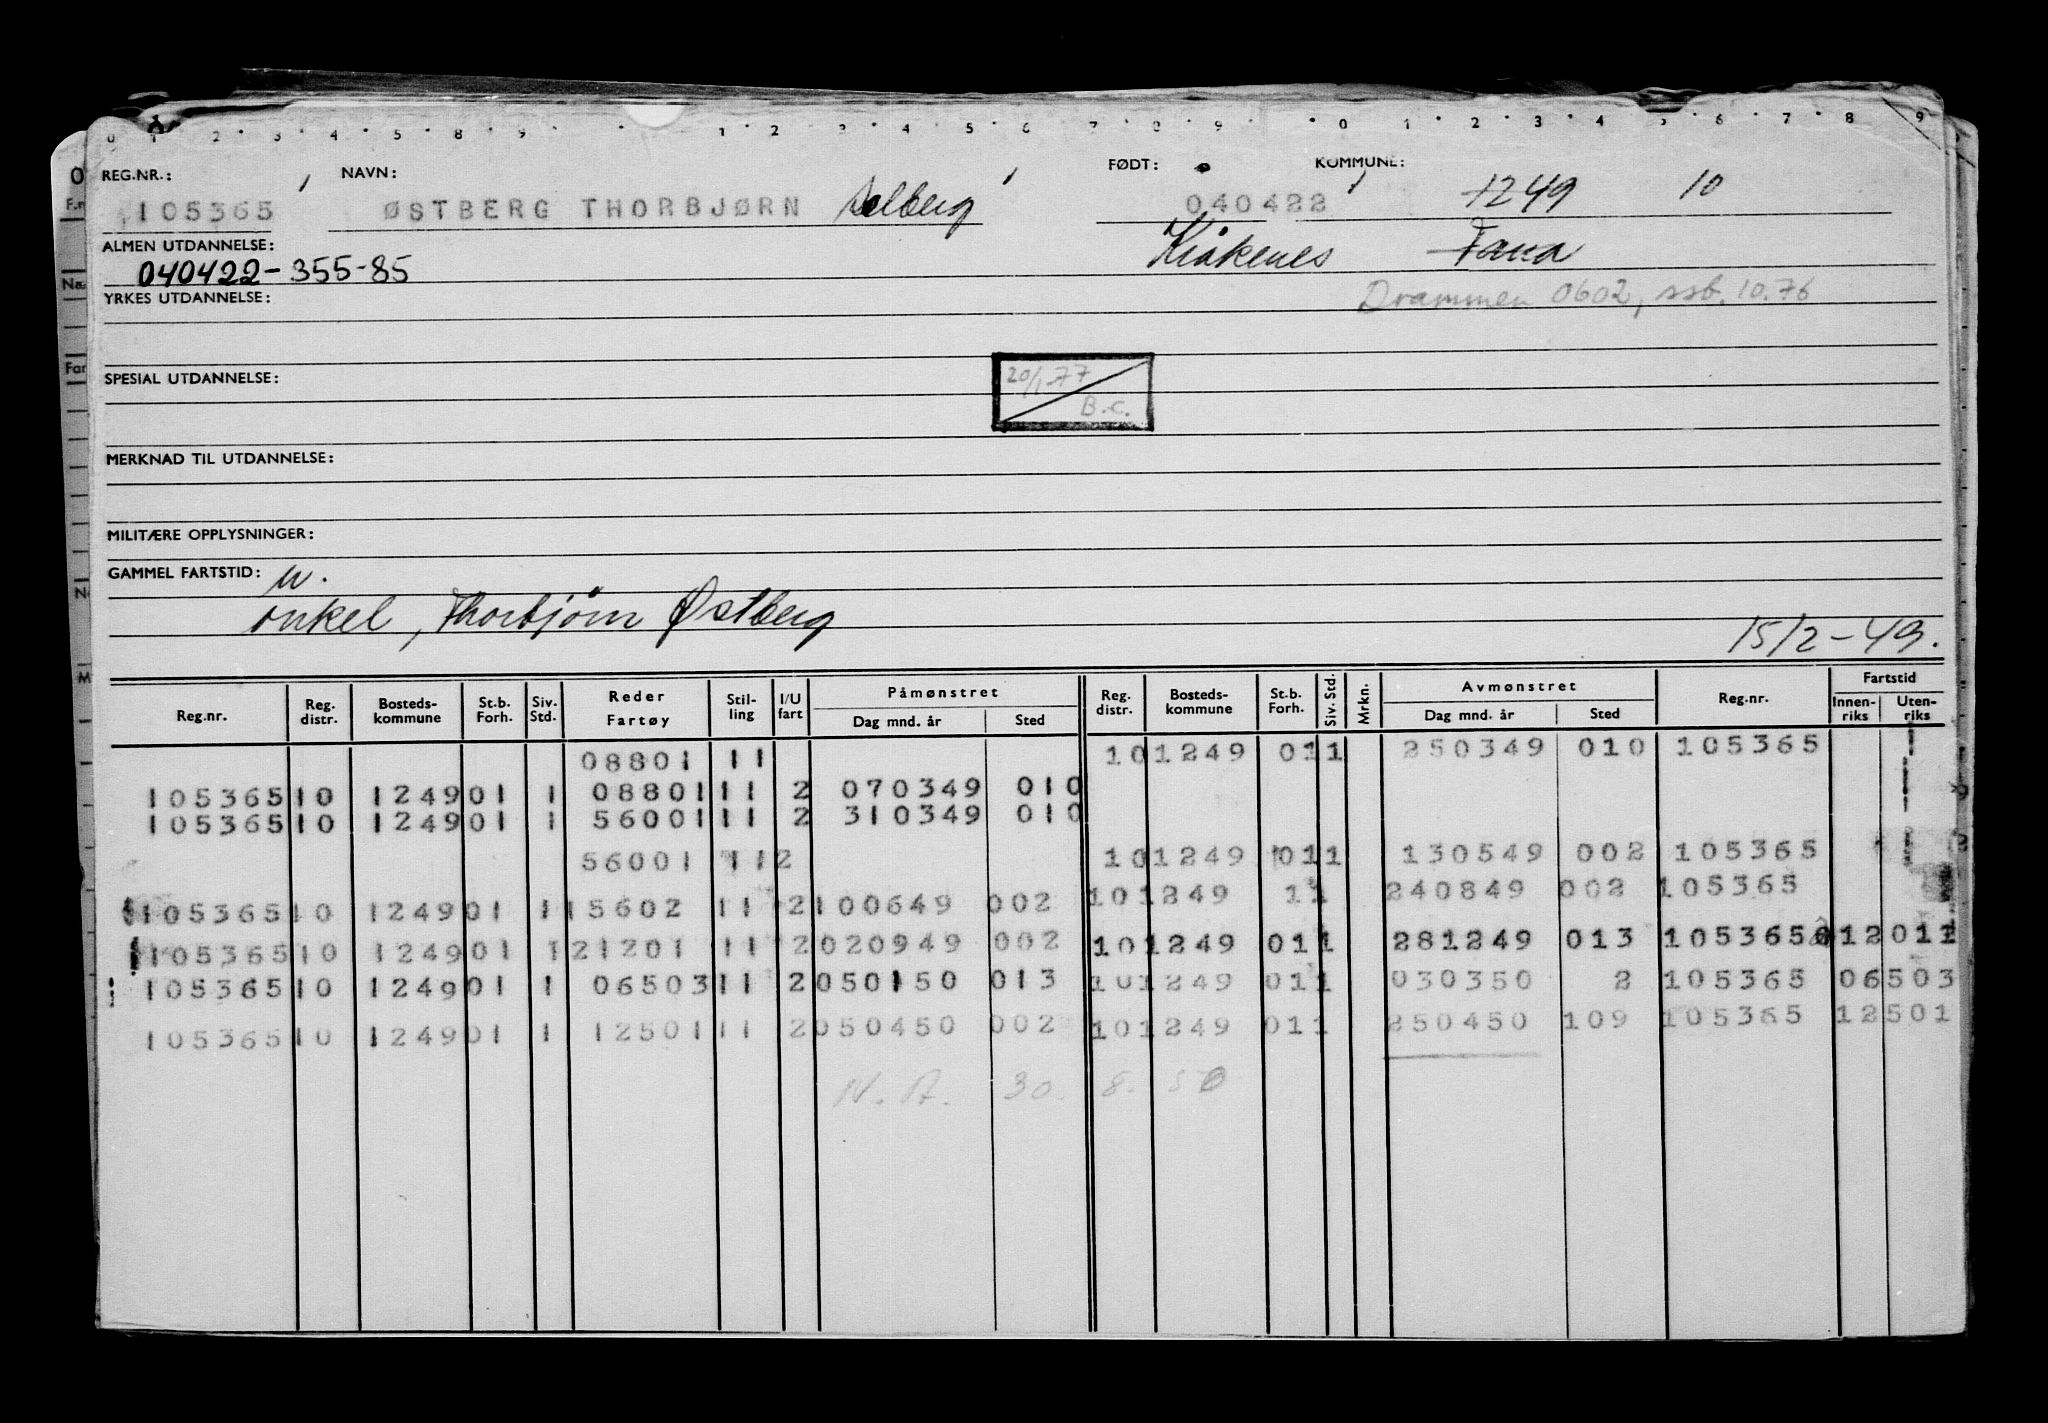 0 1 2 3 4 5 8 9 1 2 3 4 5 6 7 8 9 0 1 2 3 4 5 6 7 8 9
REG.NR.: NAVN: FØDT: KOMMUNE:
105365 ØSTBERG THORBJØRN Solberg 040422 1249 10
ALMEN UTDANNELSE: Kråkenes Fana
040422-355-85
YRKES UTDANNELSE: Drammen 0602, ssb. 10.76
SPESIAL UTDANNELSE:
20/1-77
B.C.
MERKNAD TIL UTDANNELSE:
MILITÆRE OPPLYSNINGER:
GAMMEL FARTSTID: u.
onkel, Thorbjörn Østberg 15/2-49.
Reg.nr. Reg. distr. Bosteds-kommune St.b. Forh. Siv. Std. Reder Fartøy Stil-ling I/U fart Påmønstret Dag mnd. år Sted Reg. distr. Bosteds-kommune St.b. Forh. Siv. Std. Mrkn. Avmønstret Dag mnd. år Sted Reg.nr. Fartstid Innen-riks Uten-riks
08801 11 101249 011 250349 010 105365
105365 10 1249 01 1 08801 11 2 070349 010
105365 10 1249 01 1 56001 11 2 310349 010
56001 11 2 101249 011 130549 002 105365
105365 10 1249 01 1 15602 11 2 100649 002 101249 11 240849 002 105365
105365 10 1249 01 1 21201 11 2 020949 002 101249 011 281249 013 105365 12011
105365 10 1249 01 1 06503 11 2 050150 013 101249 011 030350 2 105365 06503
105365 10 1249 01 1 12501 11 2 050450 002 101249 011 250450 109 105365 12501
N. A. 30. 8. 50